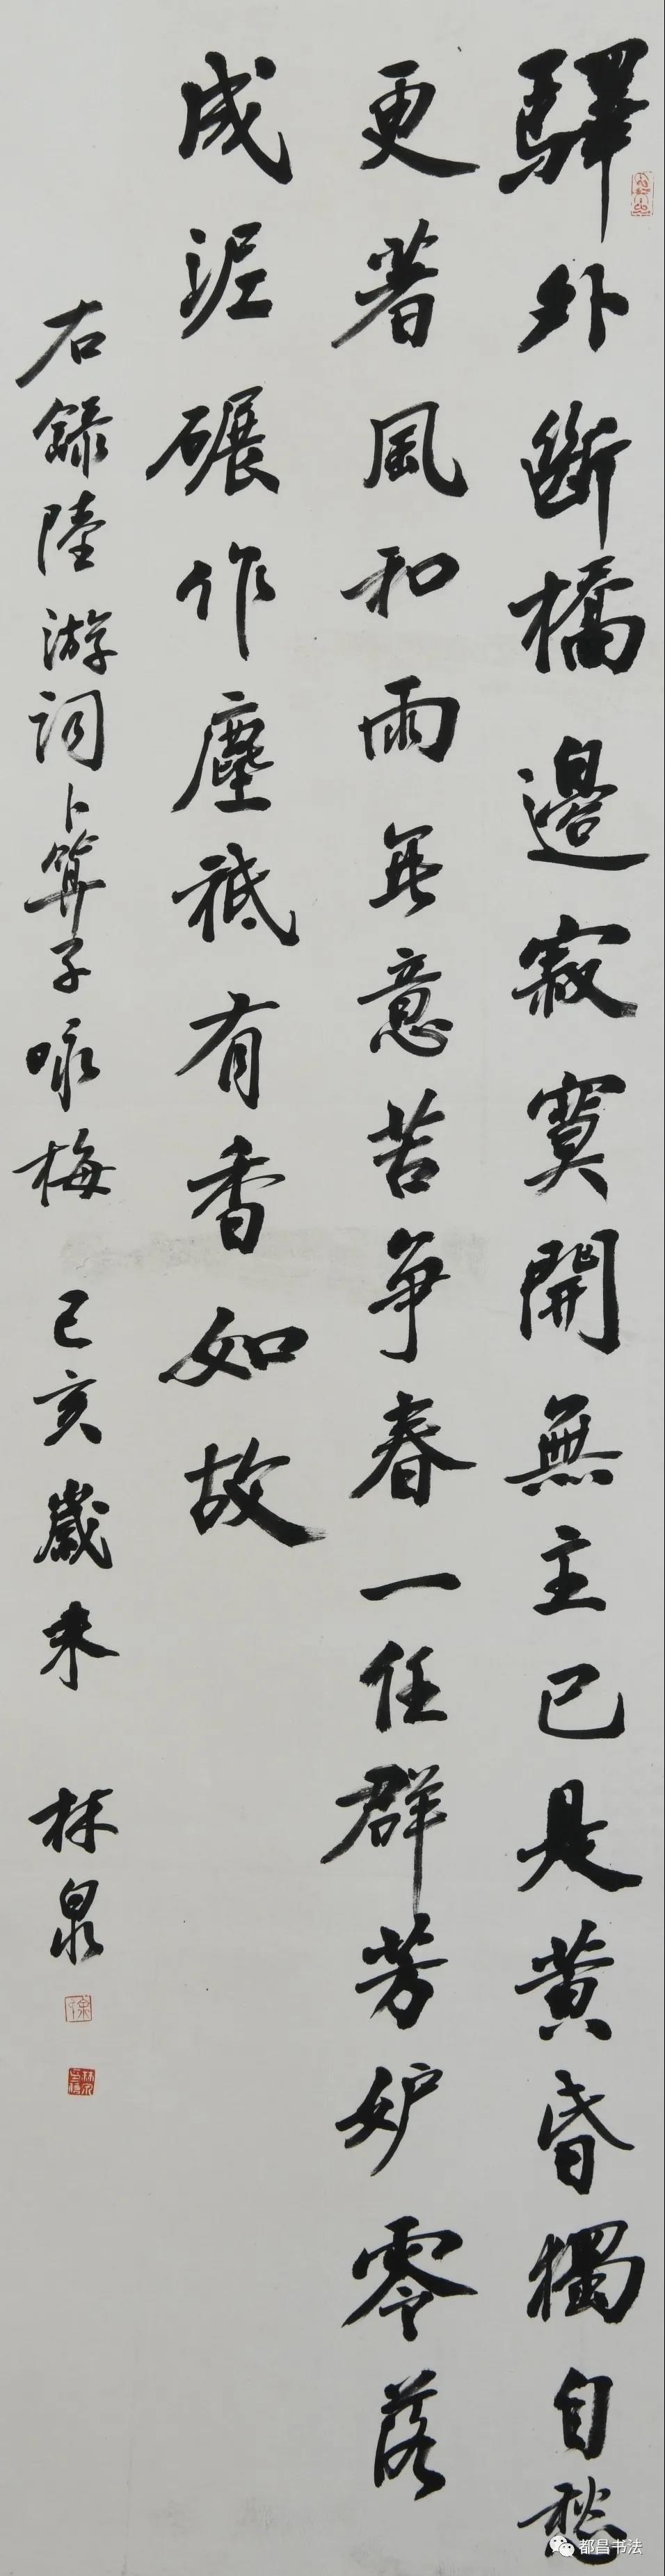 驛外斷橋邊寂寞開無主已是黄昏獨自愁
更著風和雨無意苦爭春一任群芳妒零落
成泥碾作塵祇有香如故
右錄陸游詞卜算子咏梅 己亥歲末 林泉
都昌书法